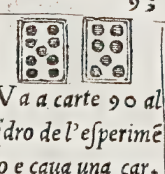 93
Va a carte 90 al
dro de l'eſperimē
o e caua una car.